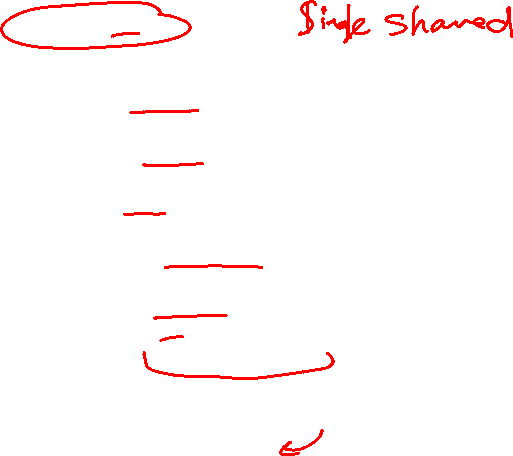 Single shared